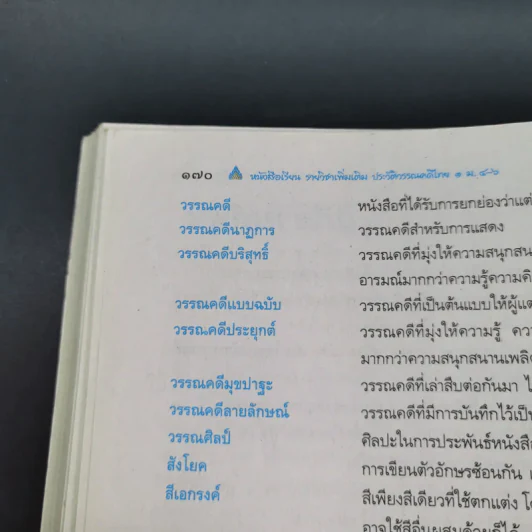 ๑๗๐ หนังสือเรียน รายวิชาเพิ่มเติม ประวัติวรรณคดีไทย ๑ ม. ๔-๖
วรรณคดี หนังสือที่ได้รับการยกย่องว่าแต่
วรรณคดีนาฏการ วรรณคดีสำหรับการแสดง
วรรณคดีบริสุทธิ์ วรรณคดีที่มุ่งให้ความสนุกสน
อารมณ์มากกว่าความรู้ความคิ
วรรณคดีแบบฉบับ วรรณคดีที่เป็นต้นแบบให้ผู้แต่
วรรณคดีประยุกต์ วรรณคดีที่มุ่งให้ความรู้ คว
มากกว่าความสนุกสนานเพลิด
วรรณคดีมุขปาฐะ วรรณคดีที่เล่าสืบต่อกันมา ไ
วรรณคดีลายลักษณ์ วรรณคดีที่มีการบันทึกไว้เป็น
วรรณศิลป์ ศิลปะในการประพันธ์หนังสือ
สังโยค การเขียนตัวอักษรซ้อนกัน
สีเอกรงค์ สีเพียงสีเดียวที่ใช้ตกแต่ง โด
อาจใช้สีอื่นผสมด้วยก็ได้